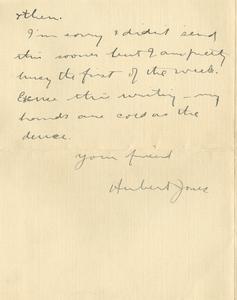 then.
I'm sorry I didn't send
this sooner but I am pretty
busy the first of the week.
Excuse this writing - my
hands are cold as the
deuce.
Your friend
Hubert Jones